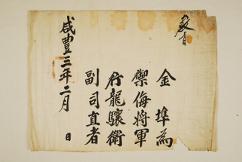 教旨
金埠為
禦侮將軍
行龍驤衛
副司直者
咸豐三年二月　日